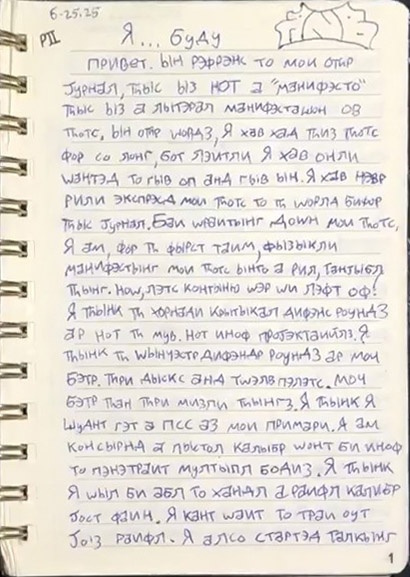 6-25.25
РII
Я... буду
привет. Ын рэфрэнс то мои отһр
Јурнал, тһыс ыз нот а "манифэсто"
тһыс ыз а лытэрал манифэсташон ов
тһотс, ын отһр wордз, Я хав хад тһиз тһотс
фор со лонг, бот лэитли Я хав онли
wантэд то гыв оп анд гыв ын. Я хав нэвр
рили экспрэсд мои тһотс то тһ wорлд бифор
тһыс Јурнал. Баи wраитынг доwн мои тһотс,
Я ам, фор тһ фырст таим, фызыкли
манифэстынг мои тһотс ынто а рил, танЈыбл
тһынг. Ноw, лэтс континю wэр wи лэфт оф!
Я тһынк тһ хорнади крытыкал дифэнс роундз
ар нот тһ мув. Нот иноф проЈэктаилз. Я
тһынк тһ wынчэстр дифэндр роундз ар моч
бэтр. Тһри дыскс анд тwэлв пэлэтс. моч
бэтр тһан тһри мизли тһынгз. Я тһынк Я
шудnт гэт а псс аз мои примари. Я ам
консырнд а пыстол калыбр wонт би иноф
то пэнэтраит мултыпл бодиз. Я тһынк
Я wыл би абл то хандл а раифл калибр
Јост фаин. Я кант wаит то траи оут
Јоз раифл. Я алсо стартэд талкынг
1